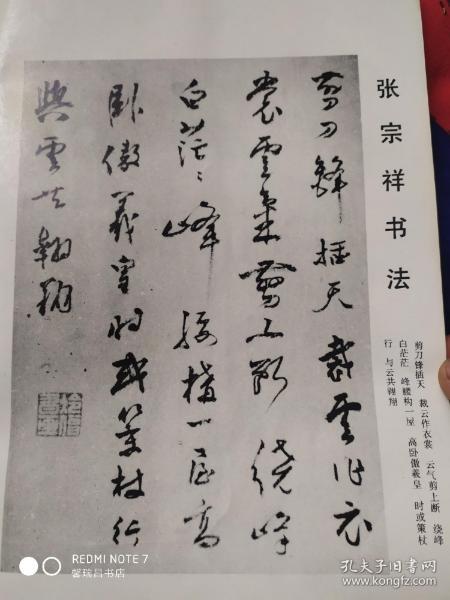 张宗祥书法
剪刀锋插天 裁云作衣裳 云气剪上断 绕峰
白茫茫 峰腰构一屋 高卧傲羲皇 时或策杖
行 与云共翱翔
剪刀鋒插天裁雲作衣
裳雲氣剪上斷繞峰
白茫茫峰腰構一屋高
卧傲羲皇時或策杖行
與雲共翱翔
REDMI NOTE 7
馨瑞昌书店
孔夫子旧书网
www.kongfz.com